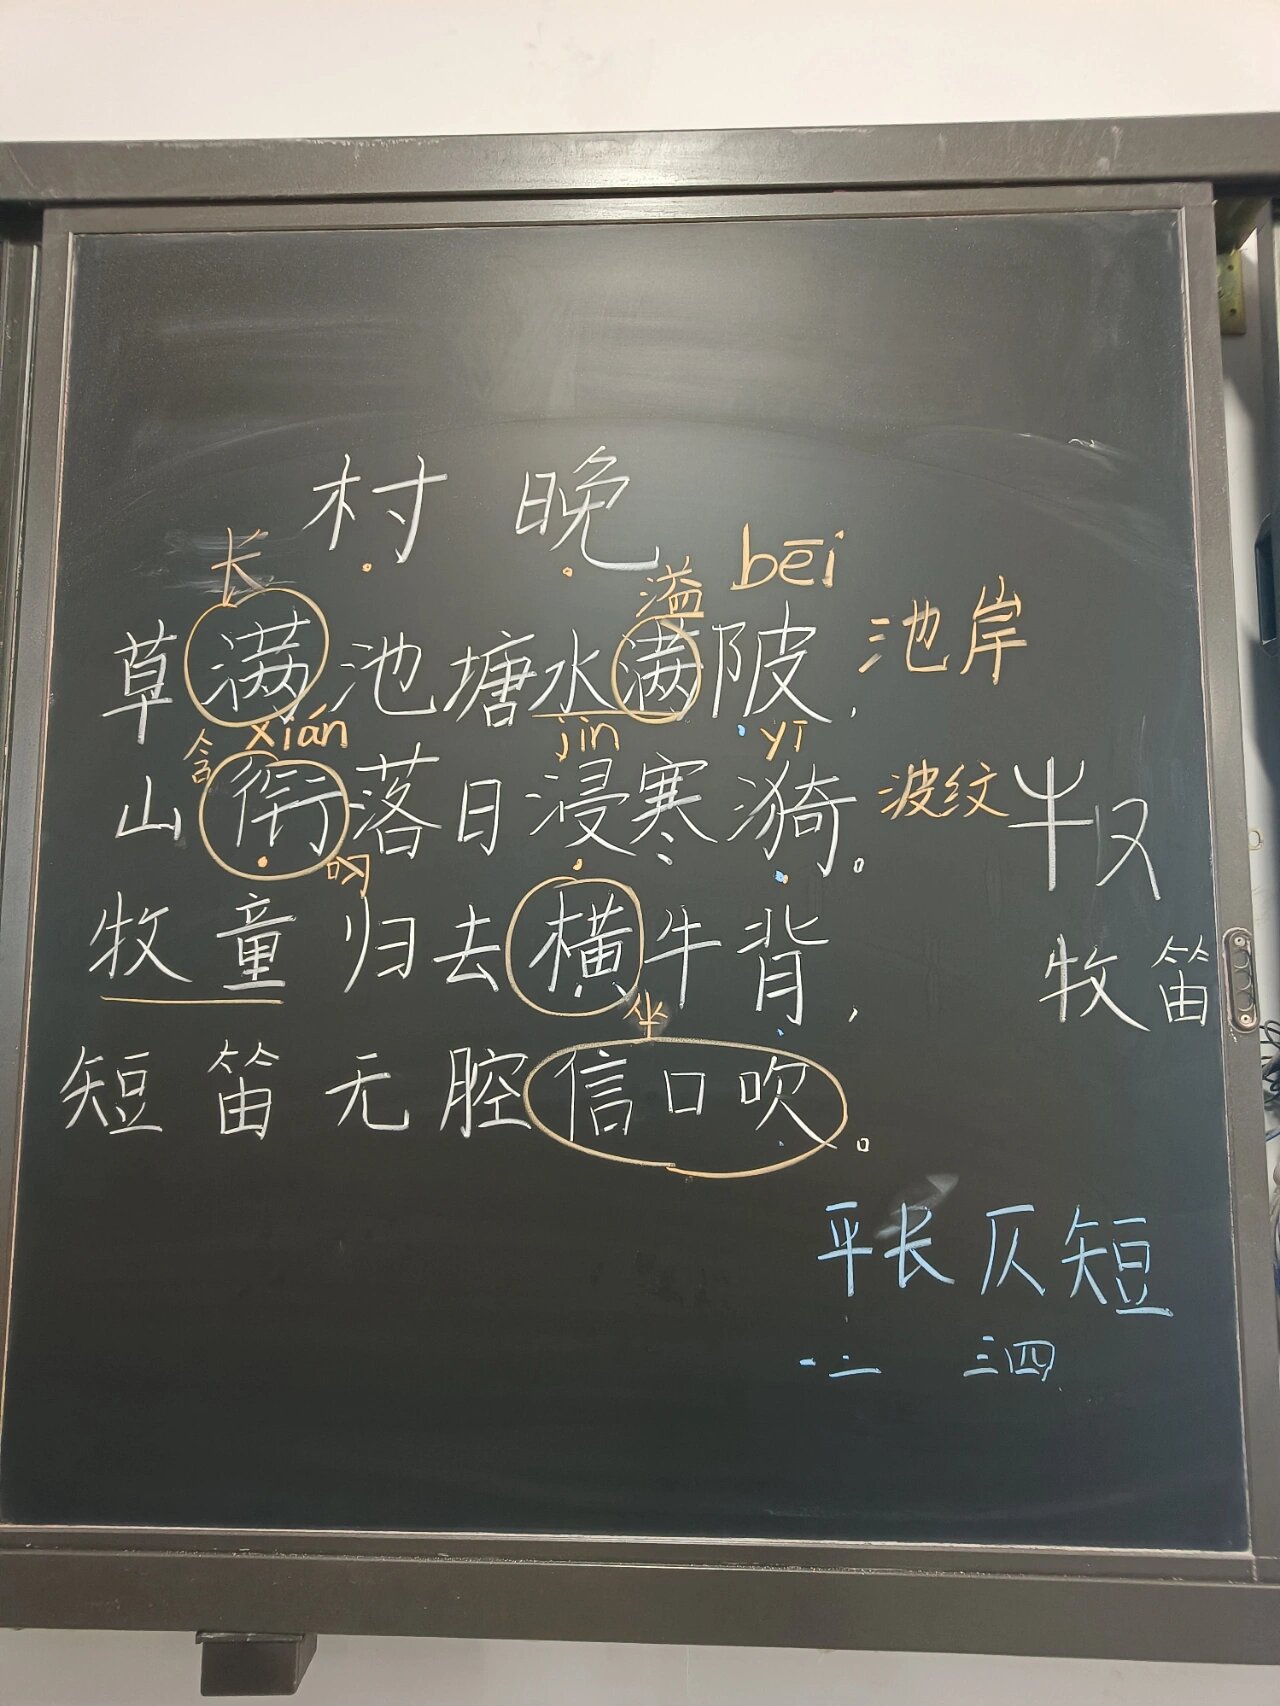 村晚
长 溢 bēi
草满池塘水满陂， 池岸
含 xián jìn yī
山衔落日浸寒漪。 波纹 牧
牧童归去横牛背， 牧笛
坐
短笛无腔信口吹。
平长仄短
一二 三四